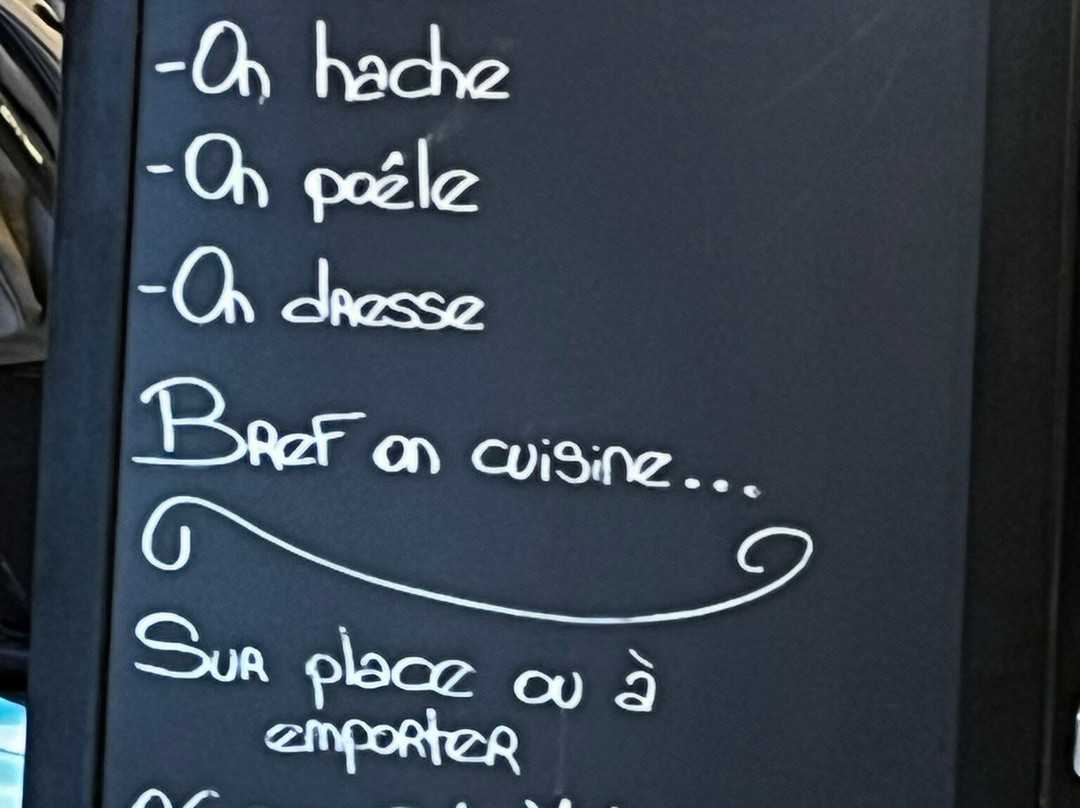 -On hache
-On poêle
-On dresse
Bref on cuisine...
Sur place ou à
emporter